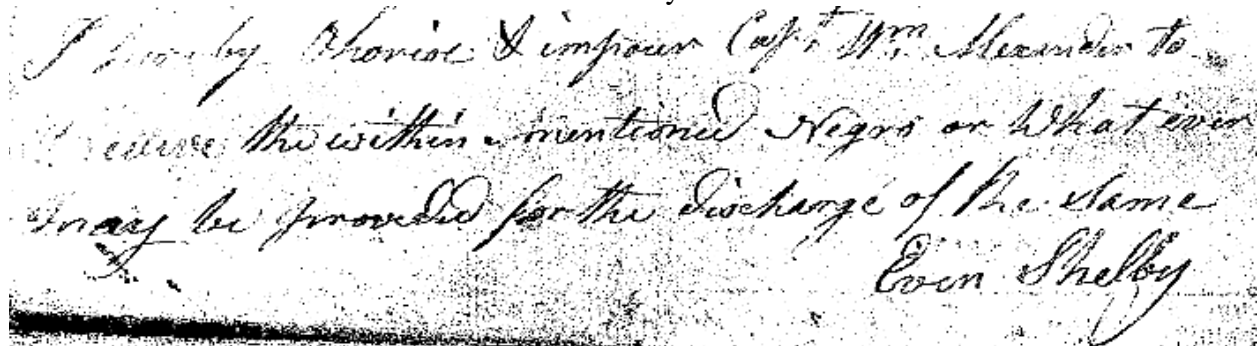 I hereby Othorise & impower Capt Wm. Alexander to
receive the within mentioned Negro or What ever
may be provided for the discharge of the Same
Evan Shelby